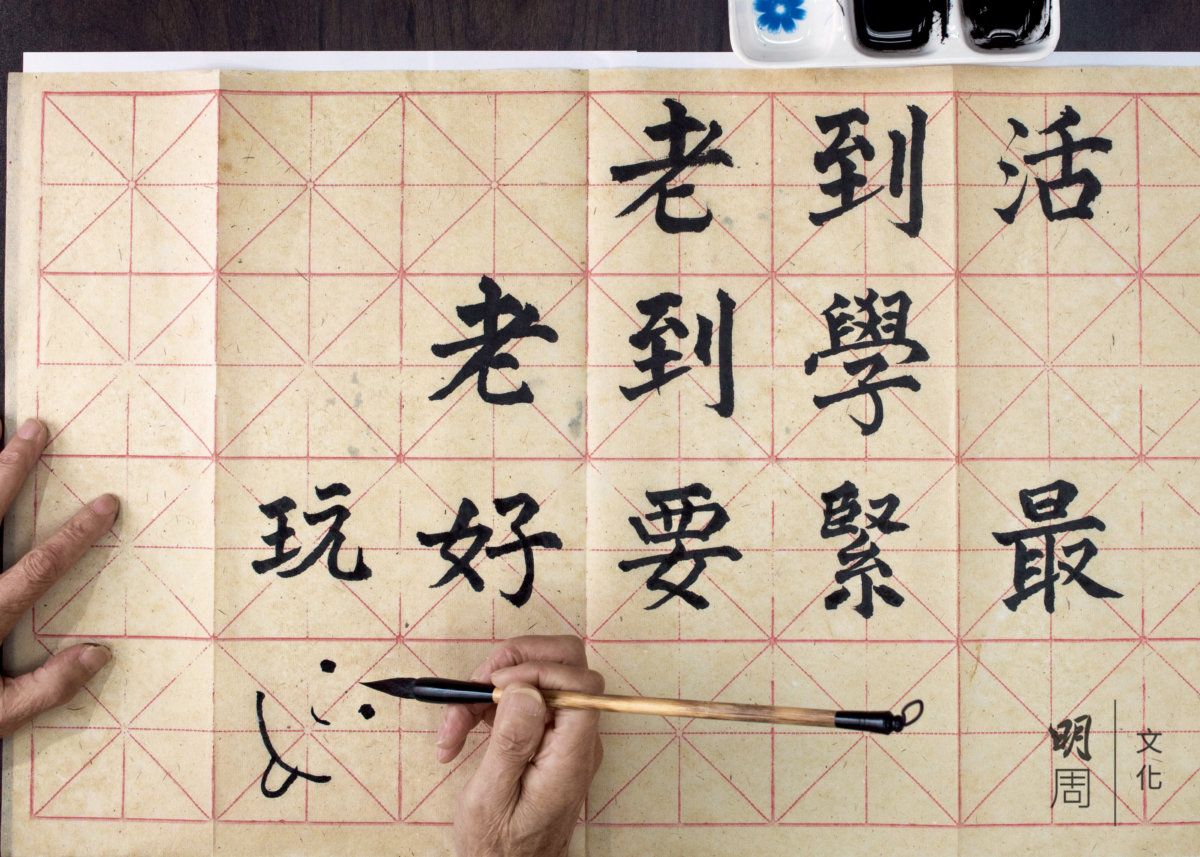 活到老
學到老
最緊要好玩
明周
文化